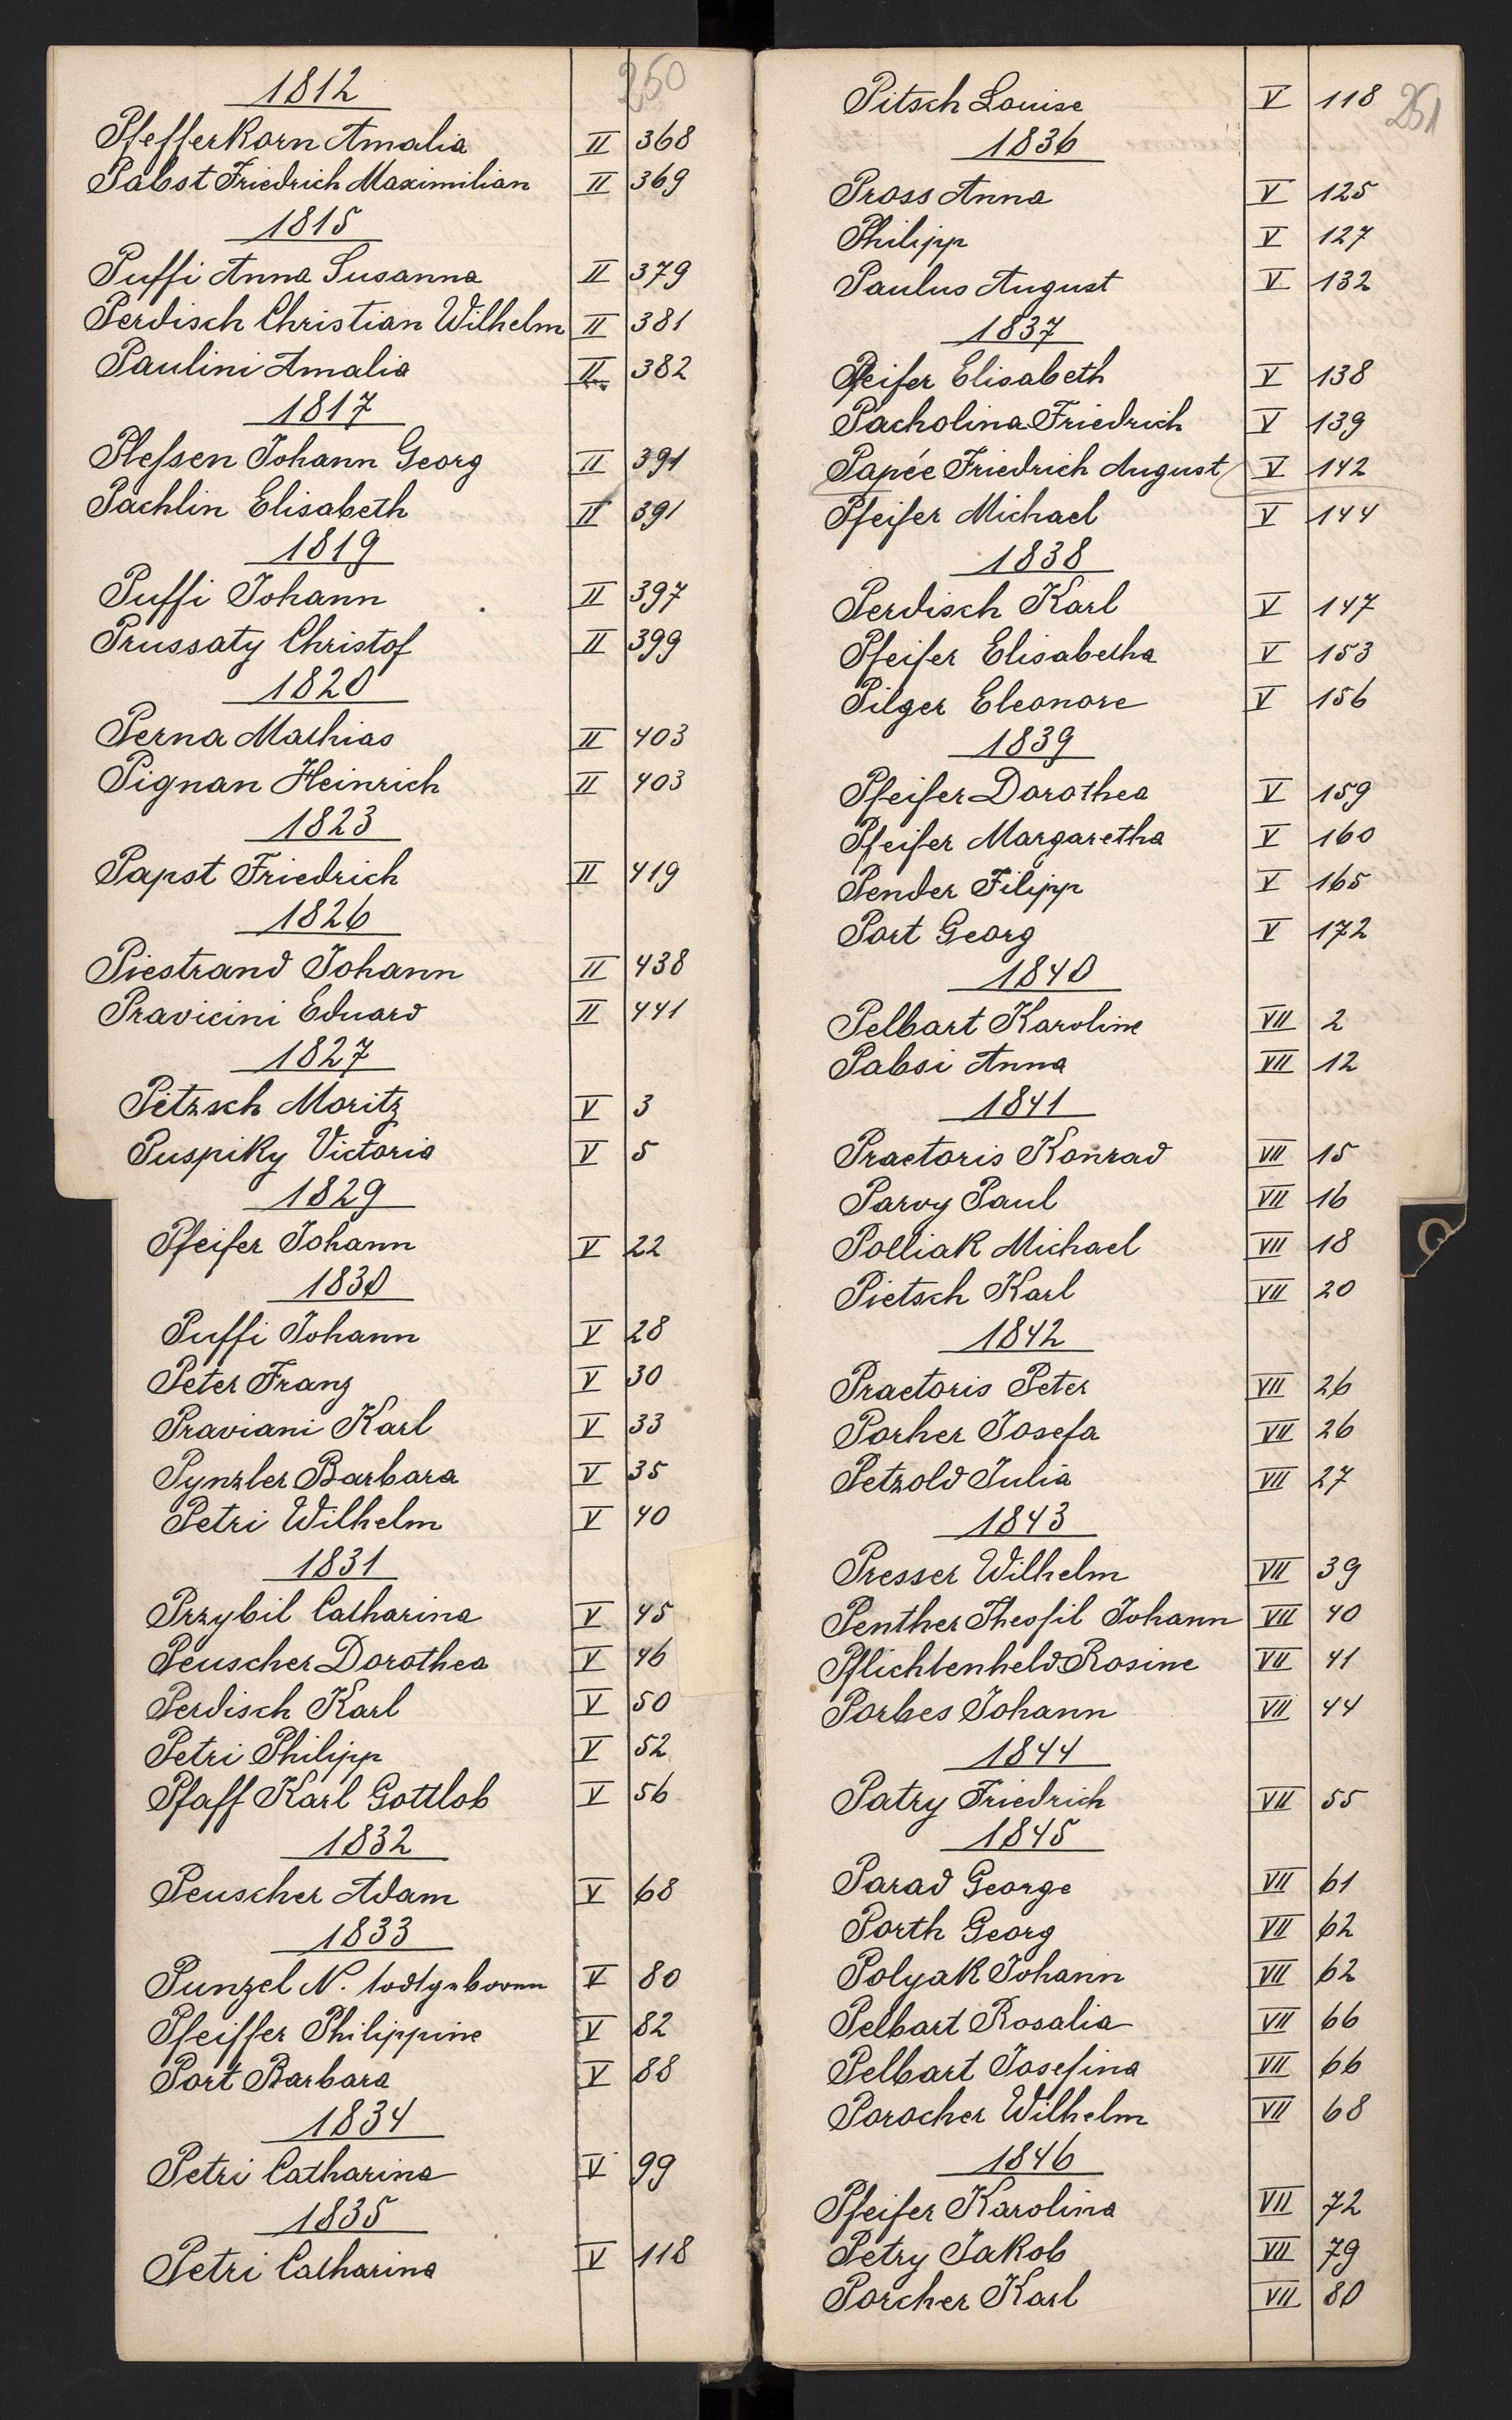 250
1812
Pfefferkorn Amalia II 368
Pabst Friedrich Maximilian II 369
1815
Puffi Anna Susanna II 379
Perdisch Christian Wilhelm II 381
Paulini Amalia II 382
1817
Pleſsen Johann Georg II 391
Pachlin Elisabeth II 391
1819
Puffi Johann II 397
Prussaty Christof II 399
1820
Perna Mathias II 403
Pignan Heinrich II 403
1823
Papst Friedrich II 419
1826
Piestrand Johann II 438
Pravicini Eduard II 441
1827
Petzsch Moritz V 3
Puspiky Victoria V 5
1829
Pfeifer Johann V 22
1830
Puffi Johann V 28
Peter Franz V 30
Praviani Karl V 33
Pynzler Barbara V 35
Petri Wilhelm V 40
1831
Przybil Catharina V 45
Peuscher Dorothea V 46
Perdisch Karl V 50
Petri Philipp V 52
Pfaff Karl Gottlob V 56
1832
Peuscher Adam V 68
1833
Punzel N. todtgeboren V 80
Pfeiffer Philippine V 82
Port Barbara V 88
1834
Petri Catharina V 99
1835
Petri Catharina V 118
251
Pitsch Louise V 118
1836
Pross Anna V 125
Philipp V 127
Paulus August V 132
1837
Pfeifer Elisabeth V 138
Pacholina Friedrich V 139
Papée Friedrich August V 142
Pfeifer Michael V 144
1838
Perdisch Karl V 147
Pfeifer Elisabetha V 153
Pilger Eleonore V 156
1839
Pfeifer Dorothea V 159
Pfeifer Margaretha V 160
Pender Filipp V 165
Port Georg V 172
1840
Pelbart Karoline VII 2
Pabsi Anna VII 12
1841
Praetoris Konrad VII 15
Parvy Paul VII 16
Polliak Michael VII 18
Pietsch Karl VII 20
1842
Praetoris Peter VII 26
Porher Josefa VII 26
Petzold Julia VII 27
1843
Presser Wilhelm VII 39
Penther Theofil Johann VII 40
Pflichtenheld Rosine VII 41
Porbes Johann VII 44
1844
Patry Friedrich VII 55
1845
Parad George VII 61
Porth Georg VII 62
Polyak Johann VII 62
Pelbart Rosalia VII 66
Pelbart Josefina VII 66
Porocher Wilhelm VII 68
1846
Pfeifer Karolina VII 72
Petry Jakob VII 79
Porcher Karl VII 80
Q